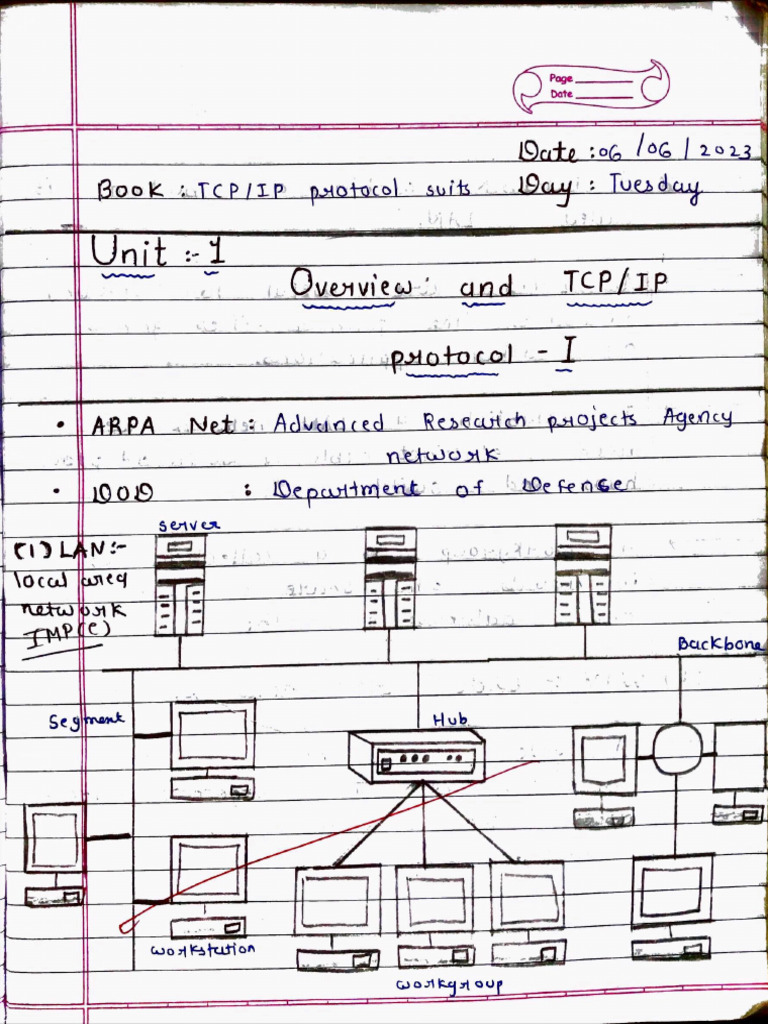 Page
Date
Date : 06 / 06 / 2023
Book : TCP/IP protocol suits Day : Tuesday
Unit :- 1
Overview and TCP/IP
protocol - I
• ARPA Net : Advanced Research projects Agency
network
• DOD : Department of Defense
server
(1) LAN:-
local area
network
IMP(C)
Backbone
Segment
Hub
workstation
workgroup